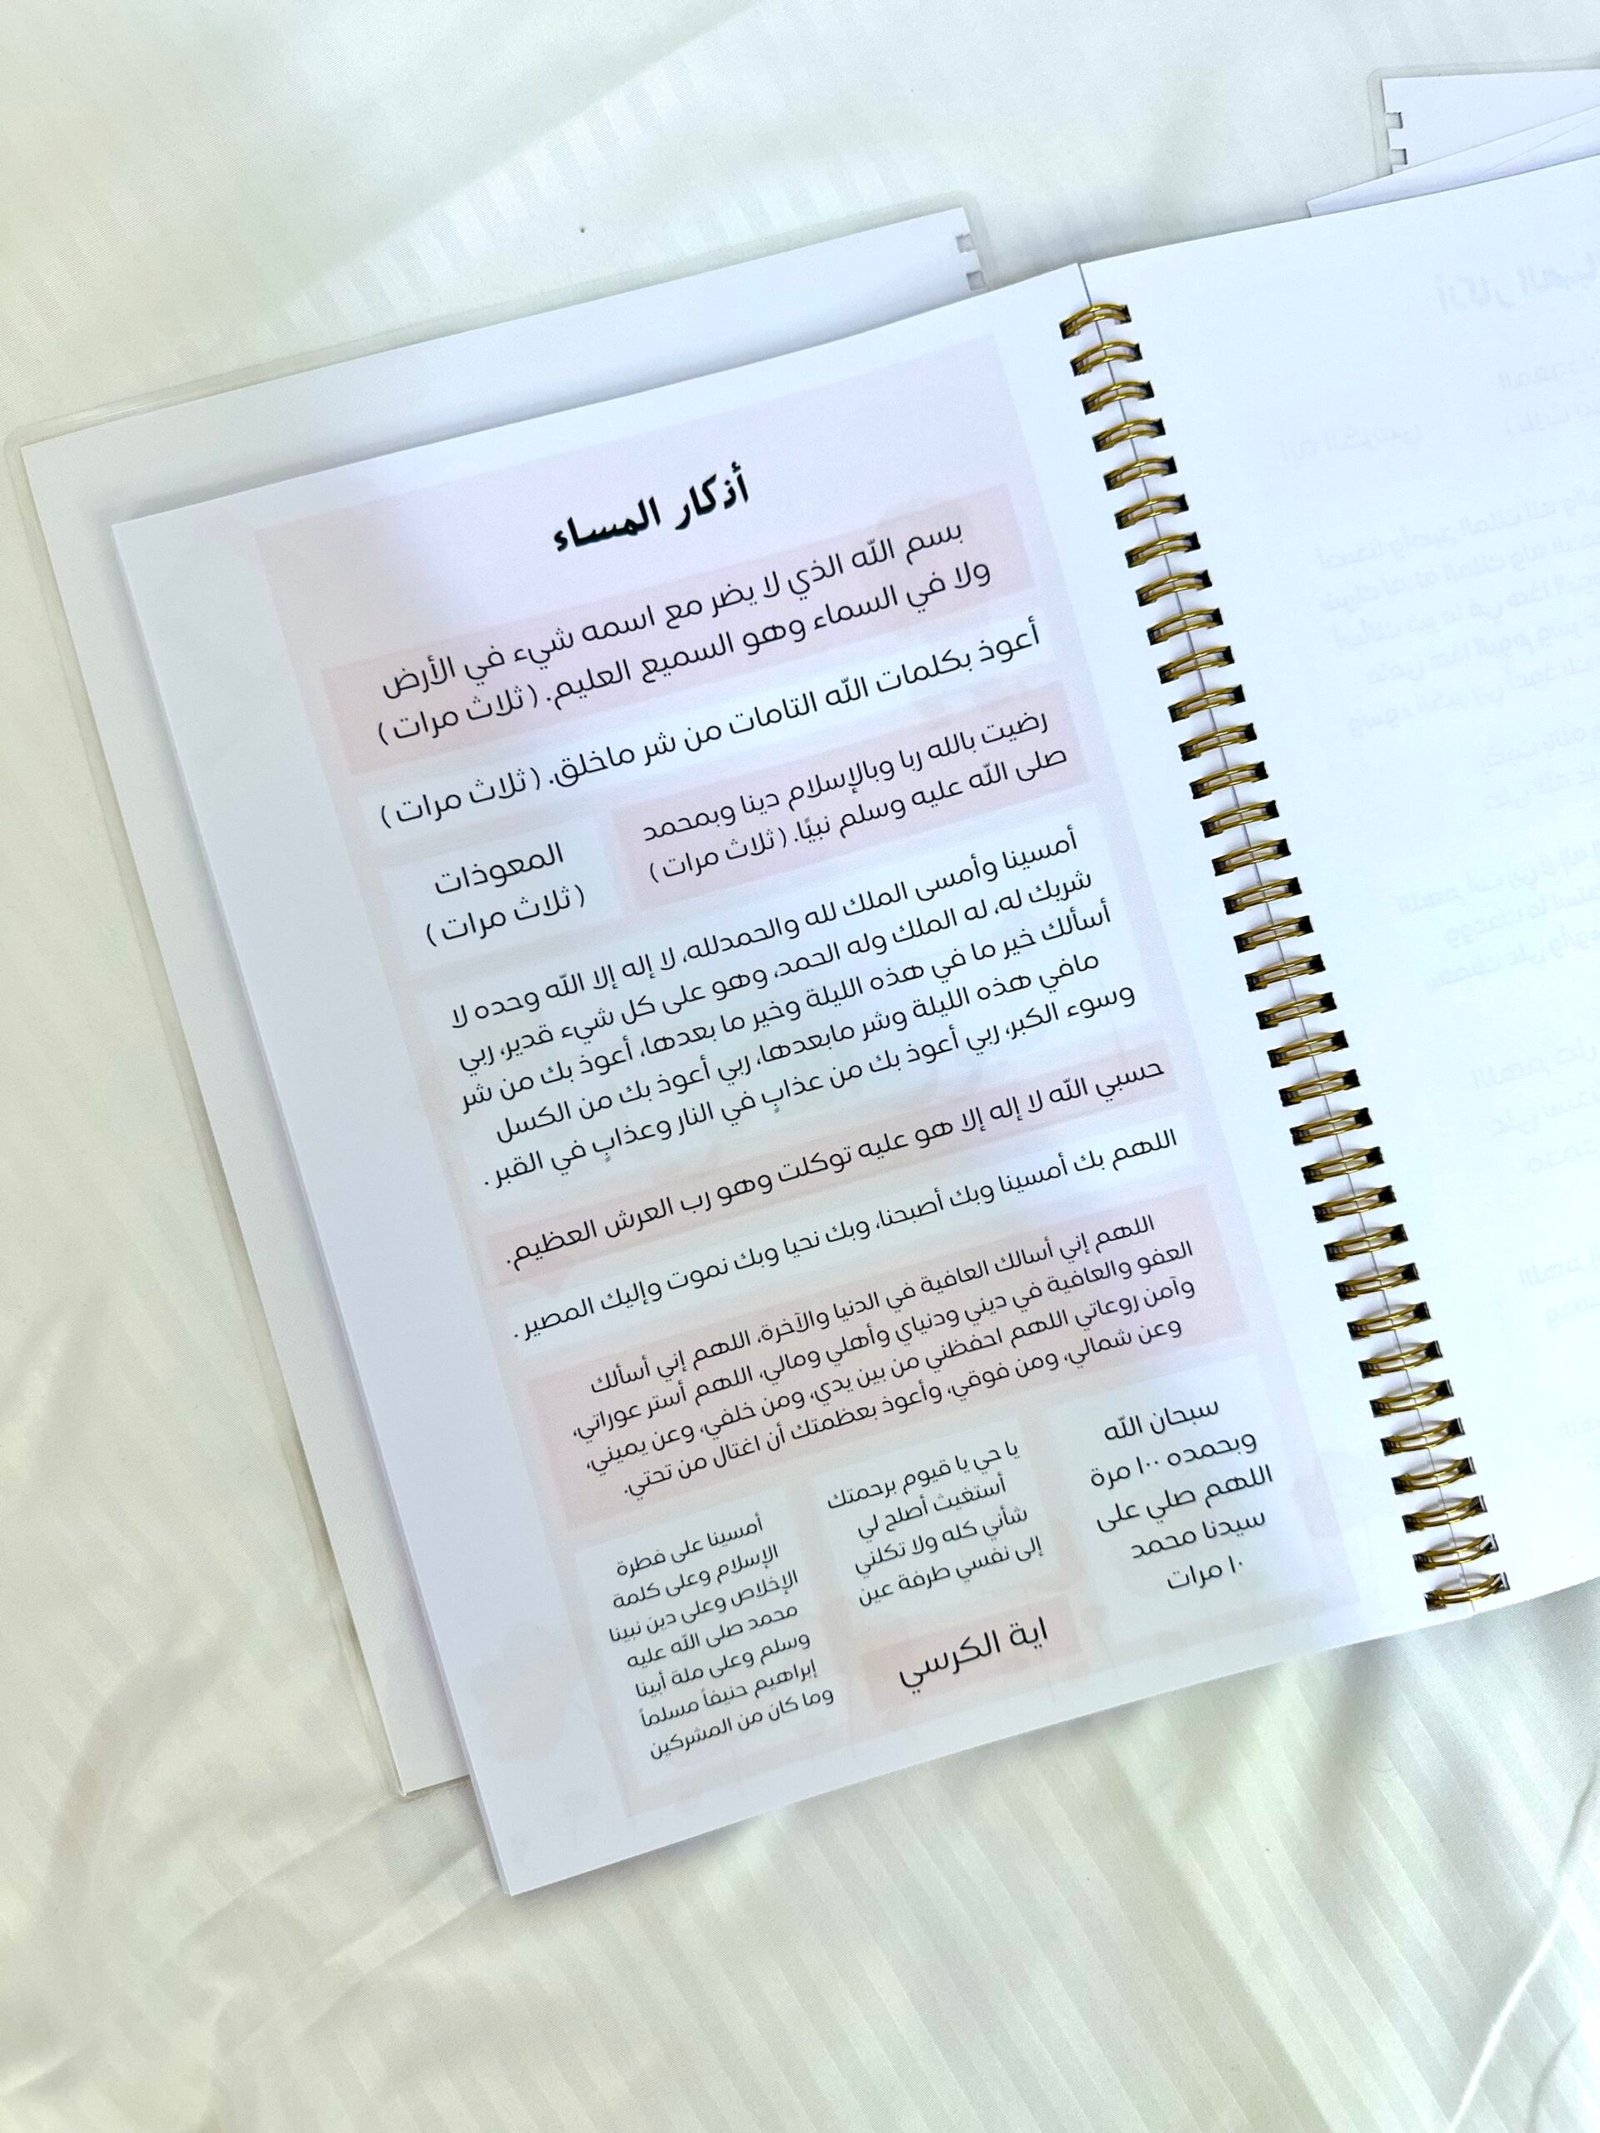 أذكار المساء
بسم الله الذي لا يضر مع اسمه شيء في الأرض
ولا في السماء وهو السميع العليم. ( ثلاث مرات )
أعوذ بكلمات الله التامات من شر ماخلق. ( ثلاث مرات )
رضيت بالله ربا وبالإسلام دينا وبمحمد
صلى الله عليه وسلم نبيًا. ( ثلاث مرات )
المعوذات
( ثلاث مرات )
أمسينا وأمسى الملك لله والحمدلله، لا إله إلا الله وحده لا
شريك له، له الملك وله الحمد، وهو على كل شيء قدير، ربي
أسألك خير ما في هذه الليلة وخير ما بعدها، أعوذ بك من شر
مافي هذه الليلة وشر مابعدها، ربي أعوذ بك من الكسل
وسوء الكبر، ربي أعوذ بك من عذابٍ في النار وعذابٍ في القبر .
حسبي الله لا إله إلا هو عليه توكلت وهو رب العرش العظيم.
اللهم بك أمسينا وبك أصبحنا، وبك نحيا وبك نموت وإليك المصير .
اللهم إني أسالك العافية في الدنيا والآخرة، اللهم إني أسألك
العفو والعافية في ديني ودنياي وأهلي ومالي، اللهم أستر عوراتي،
وآمن روعاتي اللهم احفظني من بين يدي، ومن خلفي، وعن يميني،
وعن شمالي، ومن فوقي، وأعوذ بعظمتك أن اغتال من تحتي.
سبحان الله
وبحمده ١٠٠ مرة
اللهم صلي على
سيدنا محمد
١٠ مرات
يا حي يا قيوم برحمتك
أستغيث أصلح لي
شأني كله ولا تكلني
إلى نفسي طرفة عين
اية الكرسي
أمسينا على فطرة
الإسلام وعلى كلمة
الإخلاص وعلى دين نبينا
محمد صلى الله عليه
وسلم وعلى ملة أبينا
إبراهيم حنيفاً مسلماً
وما كان من المشركين